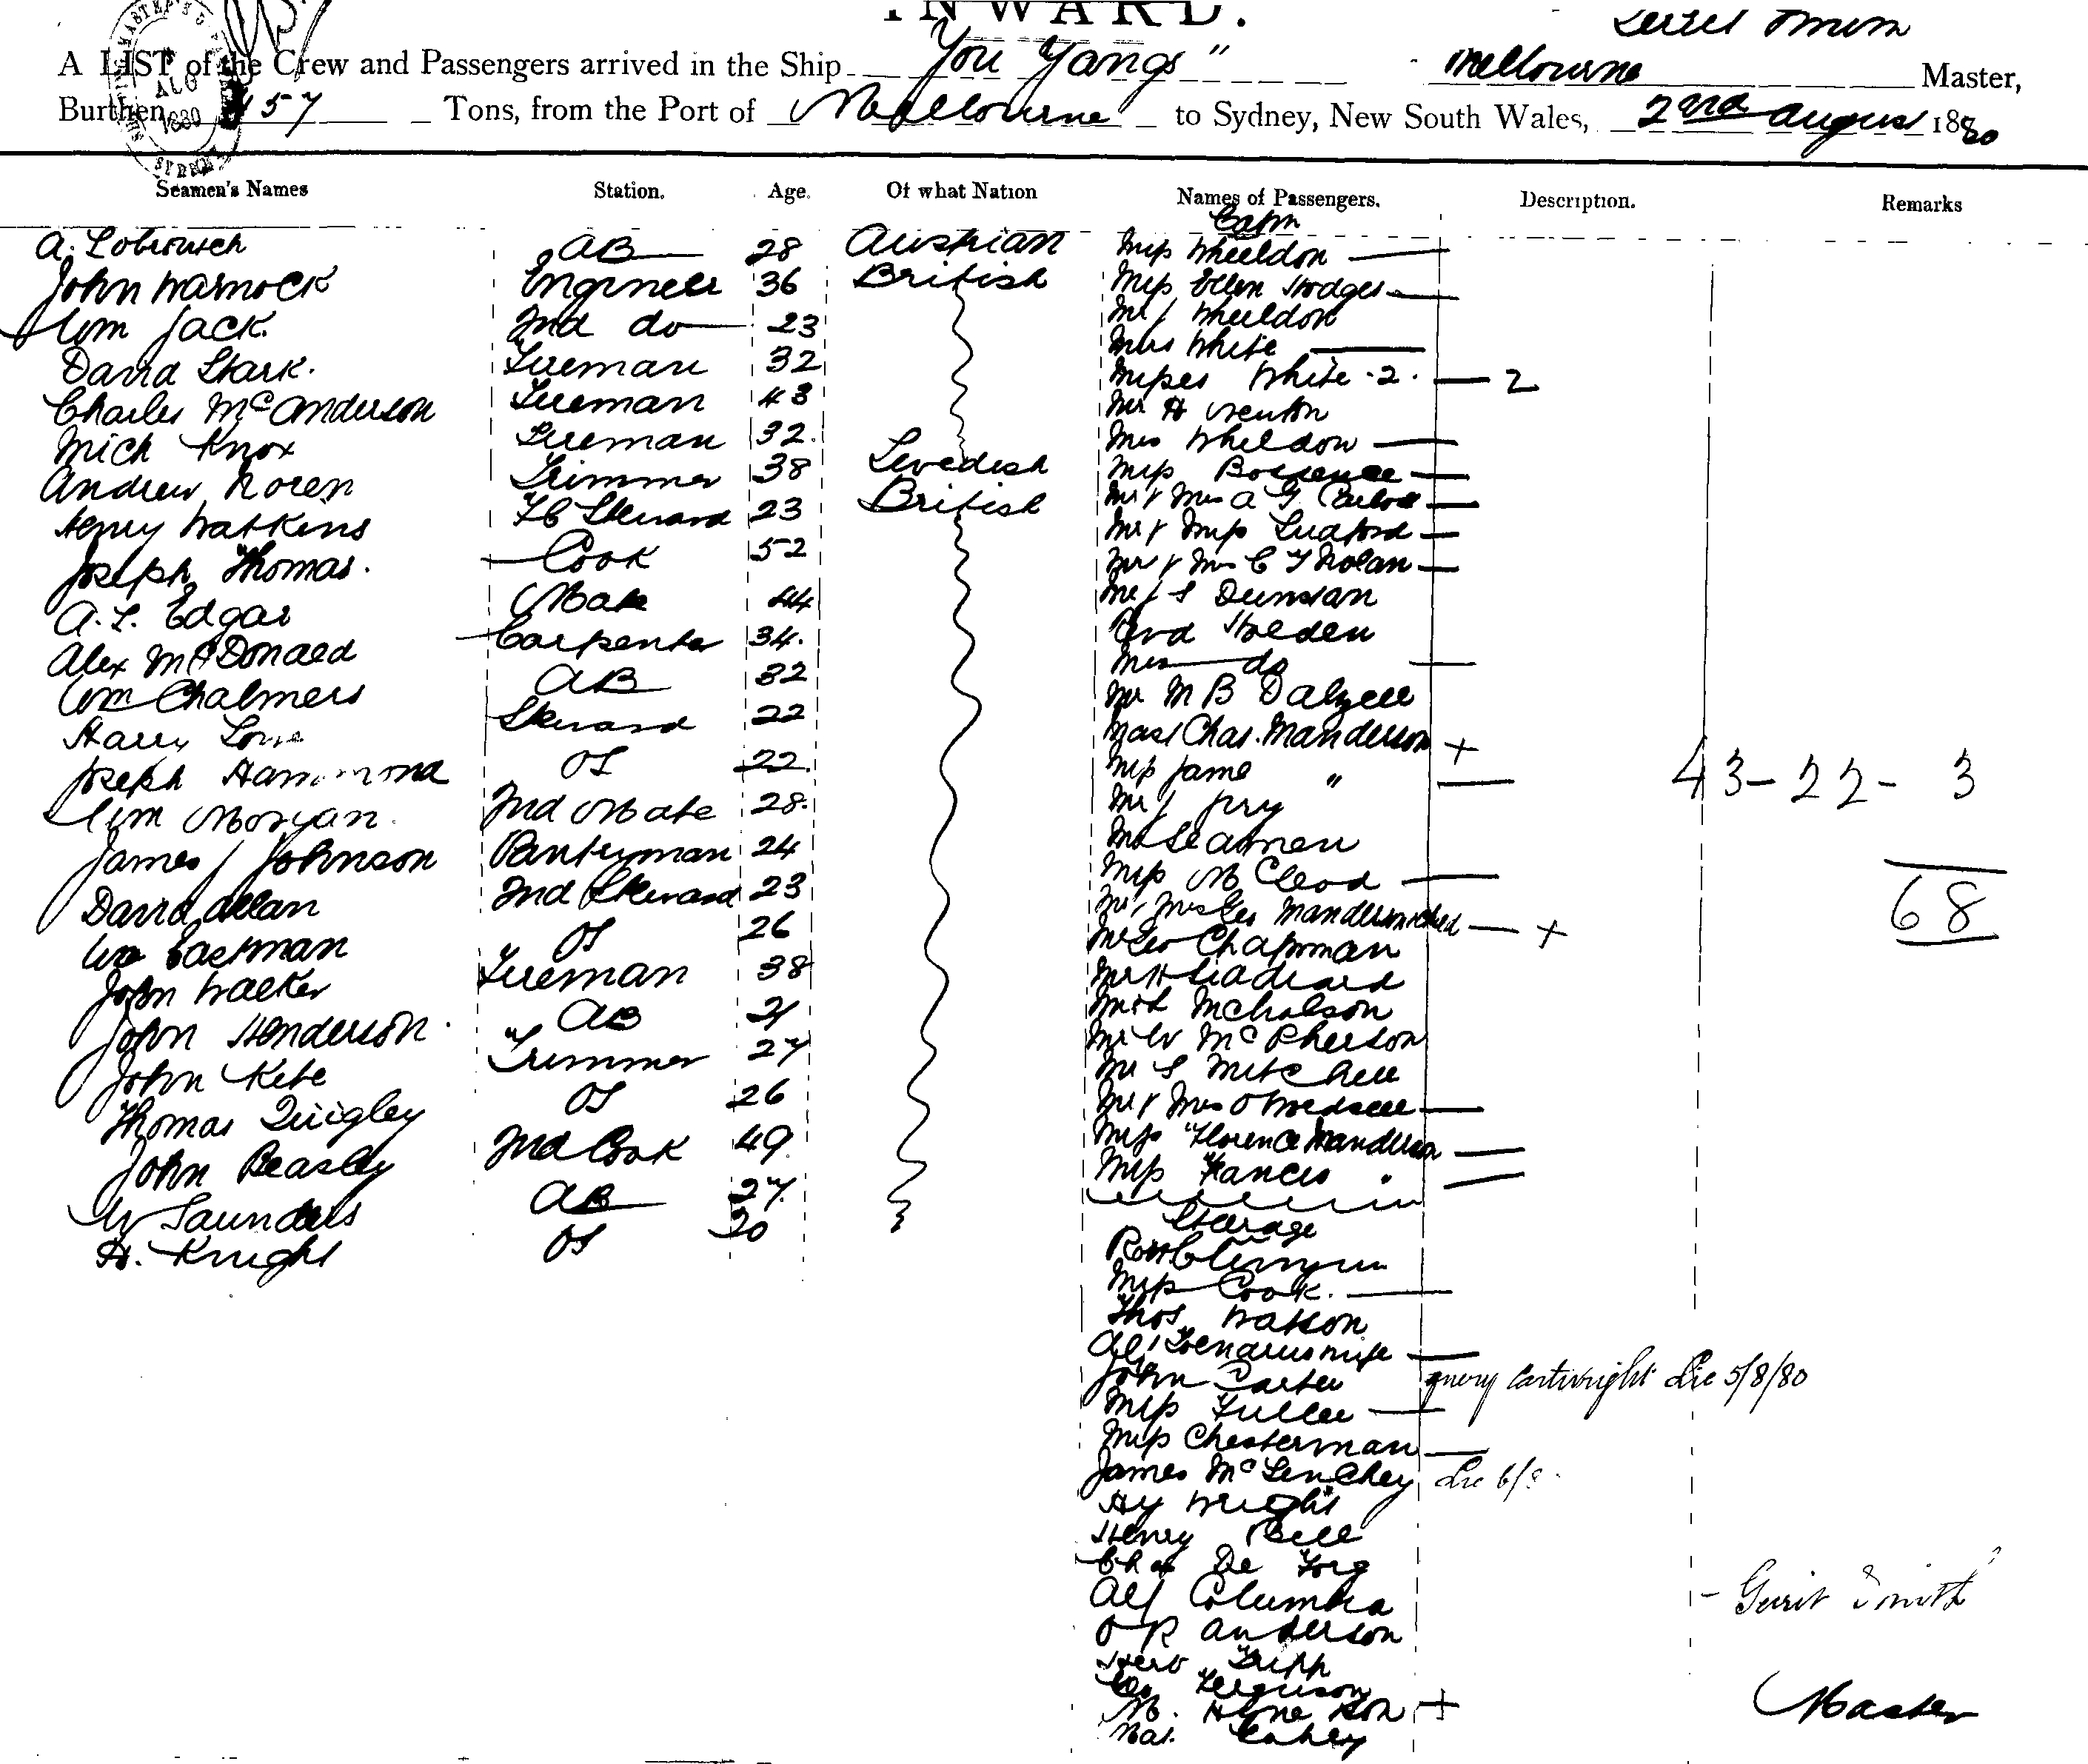 INWARD.
A LIST of the Crew and Passengers arrived in the Ship "You Yangs" Melbourne Master,
Burthen 457 Tons, from the Port of Melbourne to Sydney, New South Wales, 2nd August 1880
AUG
1880
SYDNEY
Seamen's Names Station. Age. Of what Nation Names of Passengers. Description. Remarks
Cabin
A. AB 28 Austrian Miss Wheeldon
John Warnock Engineer 36 British Miss Ellen Hodges
Wm Jack 2nd do 23 Mr J Wheeldon
David Stark. Fireman 32 Mrs White
Charles McAnderson Fireman 43 Misses White 2. 2
Mich Knox Fireman 32. Mr H Trenton
Andrew Noren Trimmer 38 Swedish Mrs Wheldon
Henry Watkins FC Steward 23 British Miss
Joseph Thomas. Cook 52 Mr & Mrs A G
A. L. Edgar Mate 44 Mr & Miss Ludford
Alex McDonald Carpenter 34. Mr & Mrs C F Nolan
Wm Chalmers AB 32 Mr J S Dunstan
Harry Steward 22 Revd Holden
Joseph Hammond OS 22. Mrs do
Wm Morgan 2nd Mate 28. Mr M B Dalzell
James J Johnson Pantryman 24 Mast Chas. Manderson +
David Allan 2nd Steward 23 Miss Jame "
Geo Eastman OS 26 Mr J Jry
John Walker Fireman 38 Mr Seamen
John Henderson AB 21 Miss McCleod
John Kebe Trimmer 27 Mr & Mrs Geo Manderson child +
Thomas Quigley OS 26 Mr Geo Chapman
John Beasley 2nd Cook 49 Mr H
W Saunders AB 27. Nicholson
H. Knight OS 20 Mr W McPherson
Mr S Mitchell
Mr & Mrs O
Miss Florence Manderson
Miss Frances "
Steerage
43-22- 3
68
Miss Cook.
Thos Watson
wife
John Carter query Cartwright Lic 5/8/80
Miss Fuller
Miss Chesterman
James McLenchey Lic 6/8.
Hy Wright
Henry Bell
Chas De
Alf Columbia
O R Anderson
Herb Tripp
Geo Ferguson
M. +
Gerrit Smith
Master